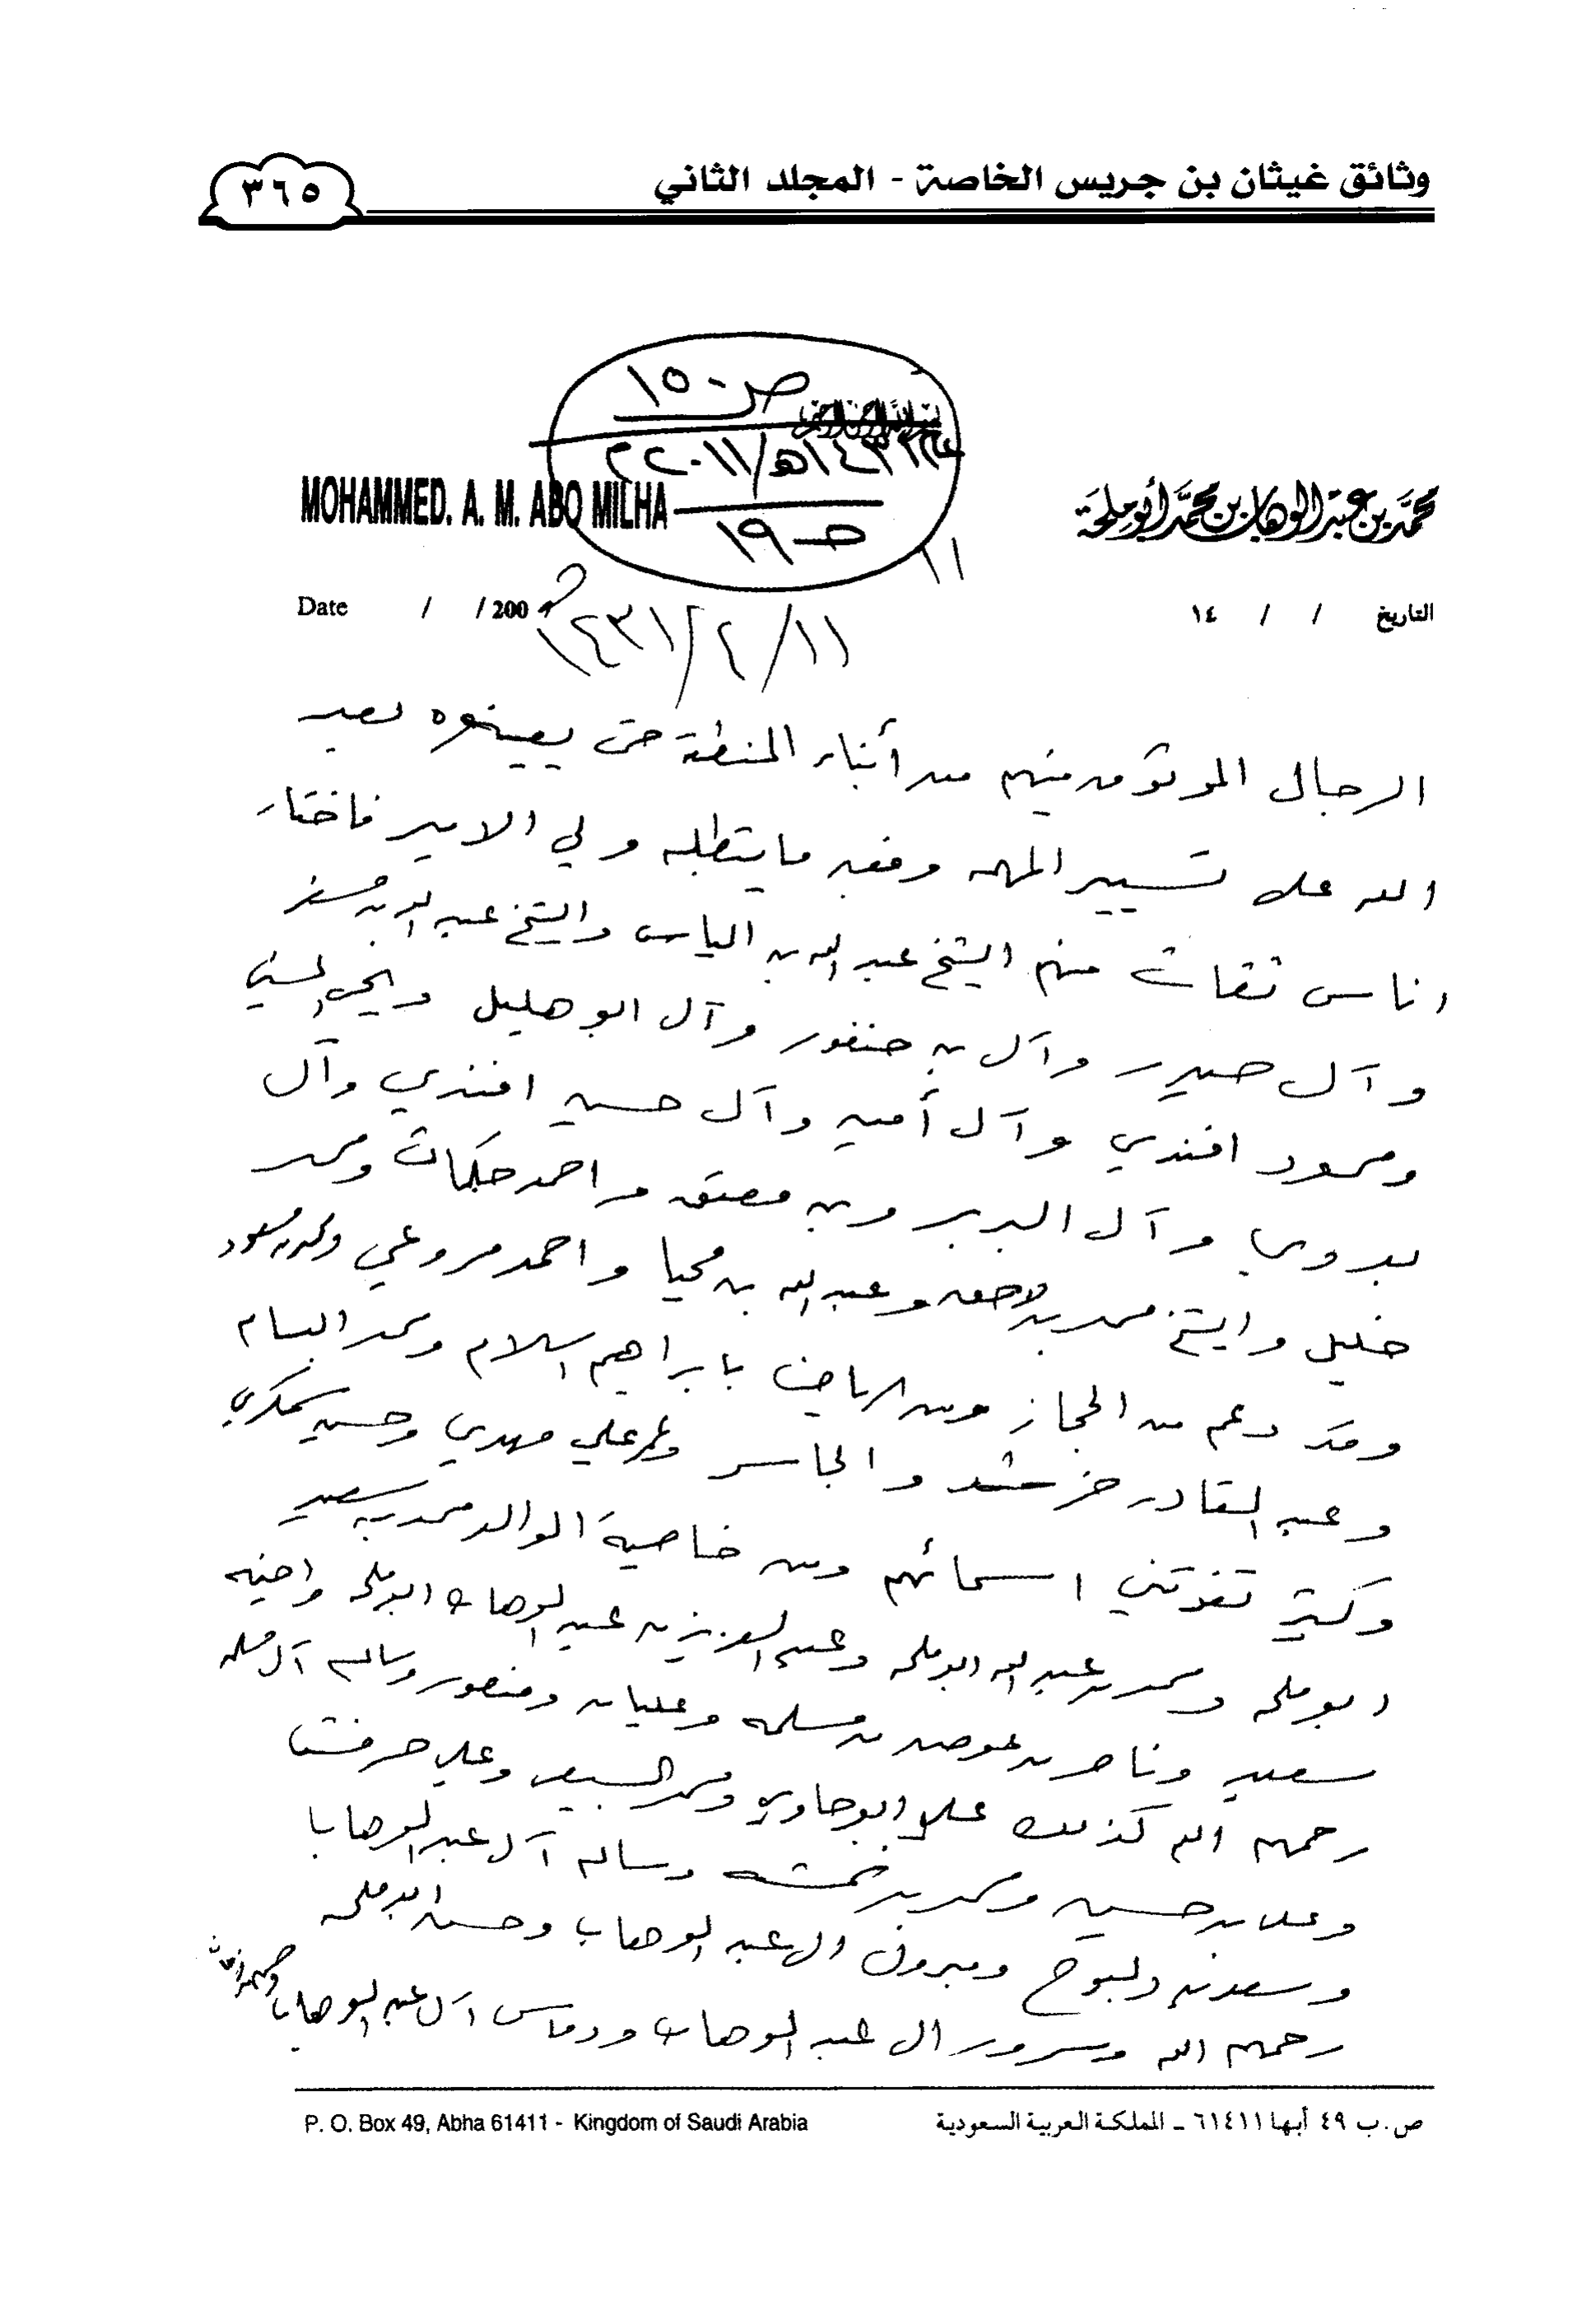 وثائق غيثان بن جريس الخاصة - المجلد الثاني
٣٦٥
ص ١٥٠
١٤٣٢هـ/٢٠١١م
ص ١٩
MOHAMMED. A. M. ABO MILHA
محمد بن عبد الوهاب بن محمد أبو ملحة
١١
Date / / 200
التاريخ / / ١٤
١١/٤/١٤٣١هـ
الرجال الموثوق منهم من أبناء المنطقة حتى يعينوه بعد
الله على تسيير المهمه وفق ما يتطلبه ولي الامر فاختار
اناس ثقات منهم الشيخ عبد الله بن الياس والشيخ عبد الله بن مسفر
وآل حيدر وآل بن حنفور وآل ابو هليل
ومحمود افندي وآل أمين وآل حسين افندي وآل
بدوي وآل البربر وبن معتق واحمد حكمات ومحمد
خليل والشيخ محمد بن لاحق وعبد الله بن محيا واحمد مروعي ومحمد بن مسعود
وقد دعم من الحجاز ومن الرياض بابراهيم السلام ومحمد البسام
وعبد القادر خرشد والجاسر وعمر علي مهدي وحسين سمكري
وكثير تفوتني اسمائهم ومن خاصية الوالد محمد بن سعيد
ابو ملحه ومحمد بن عبد الله ابو ملحه وعبد العزيز بن عبد الوهاب ابو ملحه واخيه
سعيد وناصر بن عوض بن مسلمه وعليان ومنصور وسالم آل مسلمه
رحمهم الله كذلك علي ابو حاوي ومحمد السبيعي وعلي
وعلي بن حسين ومحمد بن وسالم آل عبد الوهاب
وسعد ومبروك ال عبد الوهاب وحسن ابو ملحه
رحمهم الله وسرور ال عبد الوهاب ودماس آل عبد الوهاب
P. O. Box 49, Abha 61411 - Kingdom of Saudi Arabia
ص.ب ٤٩ أبها ٦١٤١١ ـ المملكة العربية السعودية